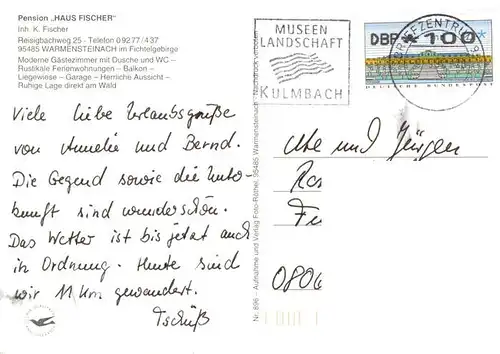 Pension „HAUS FISCHER"
Inh. K. Fischer
Reisigbachweg 25 - Telefon 0 92 77 / 4 37
95485 WARMENSTEINACH im Fichtelgebirge
Moderne Gästezimmer mit Dusche und WC –
Rustikale Ferienwohnungen – Balkon –
Liegewiese – Garage – Herrliche Aussicht –
Ruhige Lage direkt am Wald
Viele liebe Urlaubsgrüße
von Amelie und Bernd.
Die Gegend sowie die Unter-
kunft sind wunderschön.
Das Wetter ist bis jetzt auch
in Ordnung. Heute sind
wir 11 km gewandert.
Tschüß
Nr. 896 – Aufnahme und Verlag Foto-Röthel, 95485 Warmensteinach – Nachdruck verboten
MUSEEN
LANDSCHAFT
KULMBACH
BRIEFZENTRUM
DBP 100
DEUTSCHE BUNDESPOST
Ute und Jürgen
0806